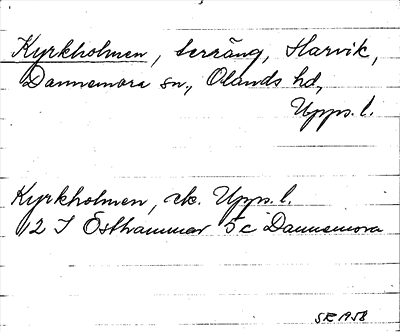 Kyrkholmen, terräng, Harvik,
Dannemora sn., Olands hd,
Upps. l.
Kyrkholmen, ek. Upps. l.
12 I Östhammar 5 c Dannemora
SE 1958